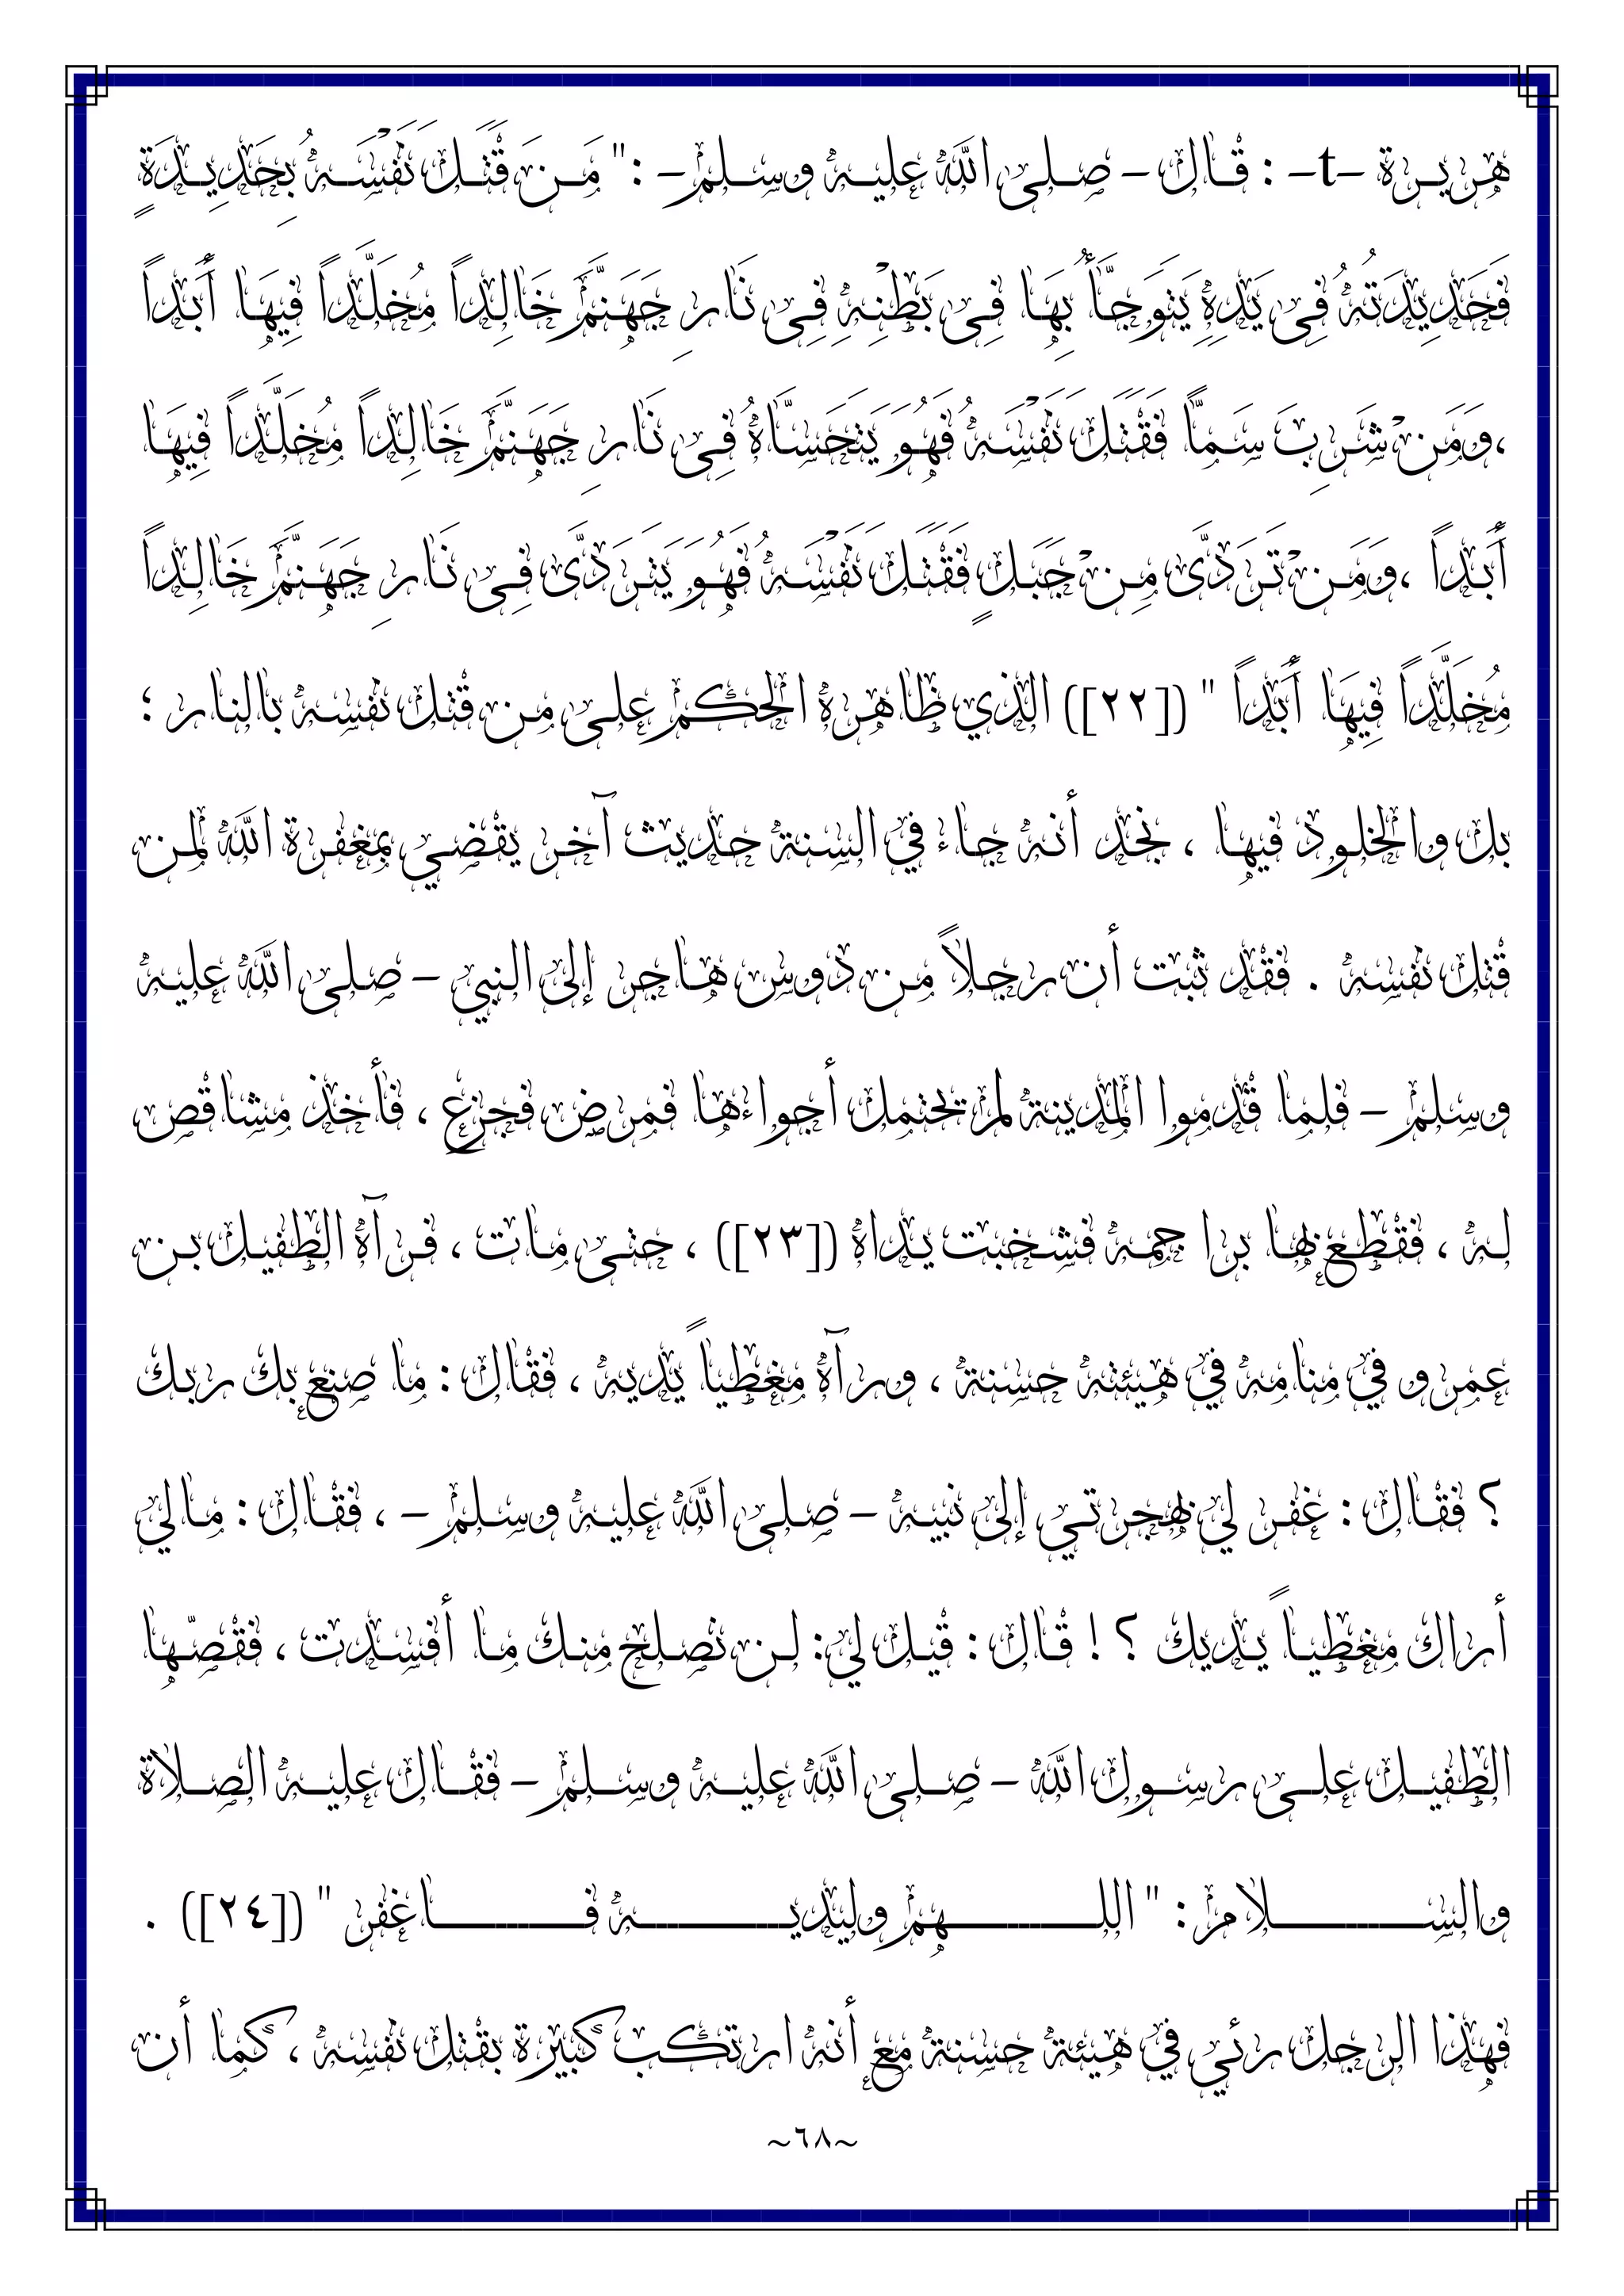 هريرة -t- : قال - صلى الله عليه وسلم - : " مَنْ قَتَلَ نَفْسَهُ بِحَدِيدَةٍ
فَحَدِيدَتُهُ فِى يَدِهِ يَتَوَجَّأُ بِهَا فِى بَطْنِهِ فِى نَارِ جَهَنَّمَ خَالِداً مُخَلَّداً فِيهَا أَبَداً
،وَمَنْ شَرِبَ سَمًّا فَقَتَلَ نَفْسَهُ فَهُوَ يَتَحَسَّاهُ فِى نَارِ جَهَنَّمَ خَالِداً مُخَلَّداً فِيهَا
أَبَداً ،وَمَنْ تَرَدَّى مِنْ جَبَلٍ فَقَتَلَ نَفْسَهُ فَهُوَ يَتَرَدَّى فِى نَارِ جَهَنَّمَ خَالِداً
مُخَلَّداً فِيهَا أَبَداً " ([٢٢]) الذي ظاهره الحكم على من قتل نفسه بالنار ؛
بل والخلود فيها ، نجد أنه جاء في السنة حديث آخر يقضي بمغفرة الله لمن
قتل نفسه . فقد ثبت أن رجلاً من دوس هاجر إلى النبي - صلى الله عليه
وسلم - فلما قدموا المدينة لم تحتمل أجواءها فمرض فجزع ، فأخذ مشاقص
له ، فقطع بها براجمه فشخبت يداه ([٢٣]) ، حتى مات ، فرآه الطفيل بن
عمرو في منامه في هيئته حسنة ، ورآه مغطياً يديه ، فقال : ما صنع بك ربك
؟ فقال : غفر لي بهجرتي إلى نبيه - صلى الله عليه وسلم - ، فقال : مالي
أراك مغطياً يديك ؟ ! قال : قيل لي : لن نصلح منك ما أفسدت ، فقصّها
الطفيل على رسول الله - صلى الله عليه وسلم - فقال عليه الصلاة
والسلام : " اللهم وليديه فاغفر " ([٢٤]) .
فهذا الرجل رئي في هيئة حسنة مع أنه ارتكب كبيرة بقتل نفسه ، كما أن
~٦٨~